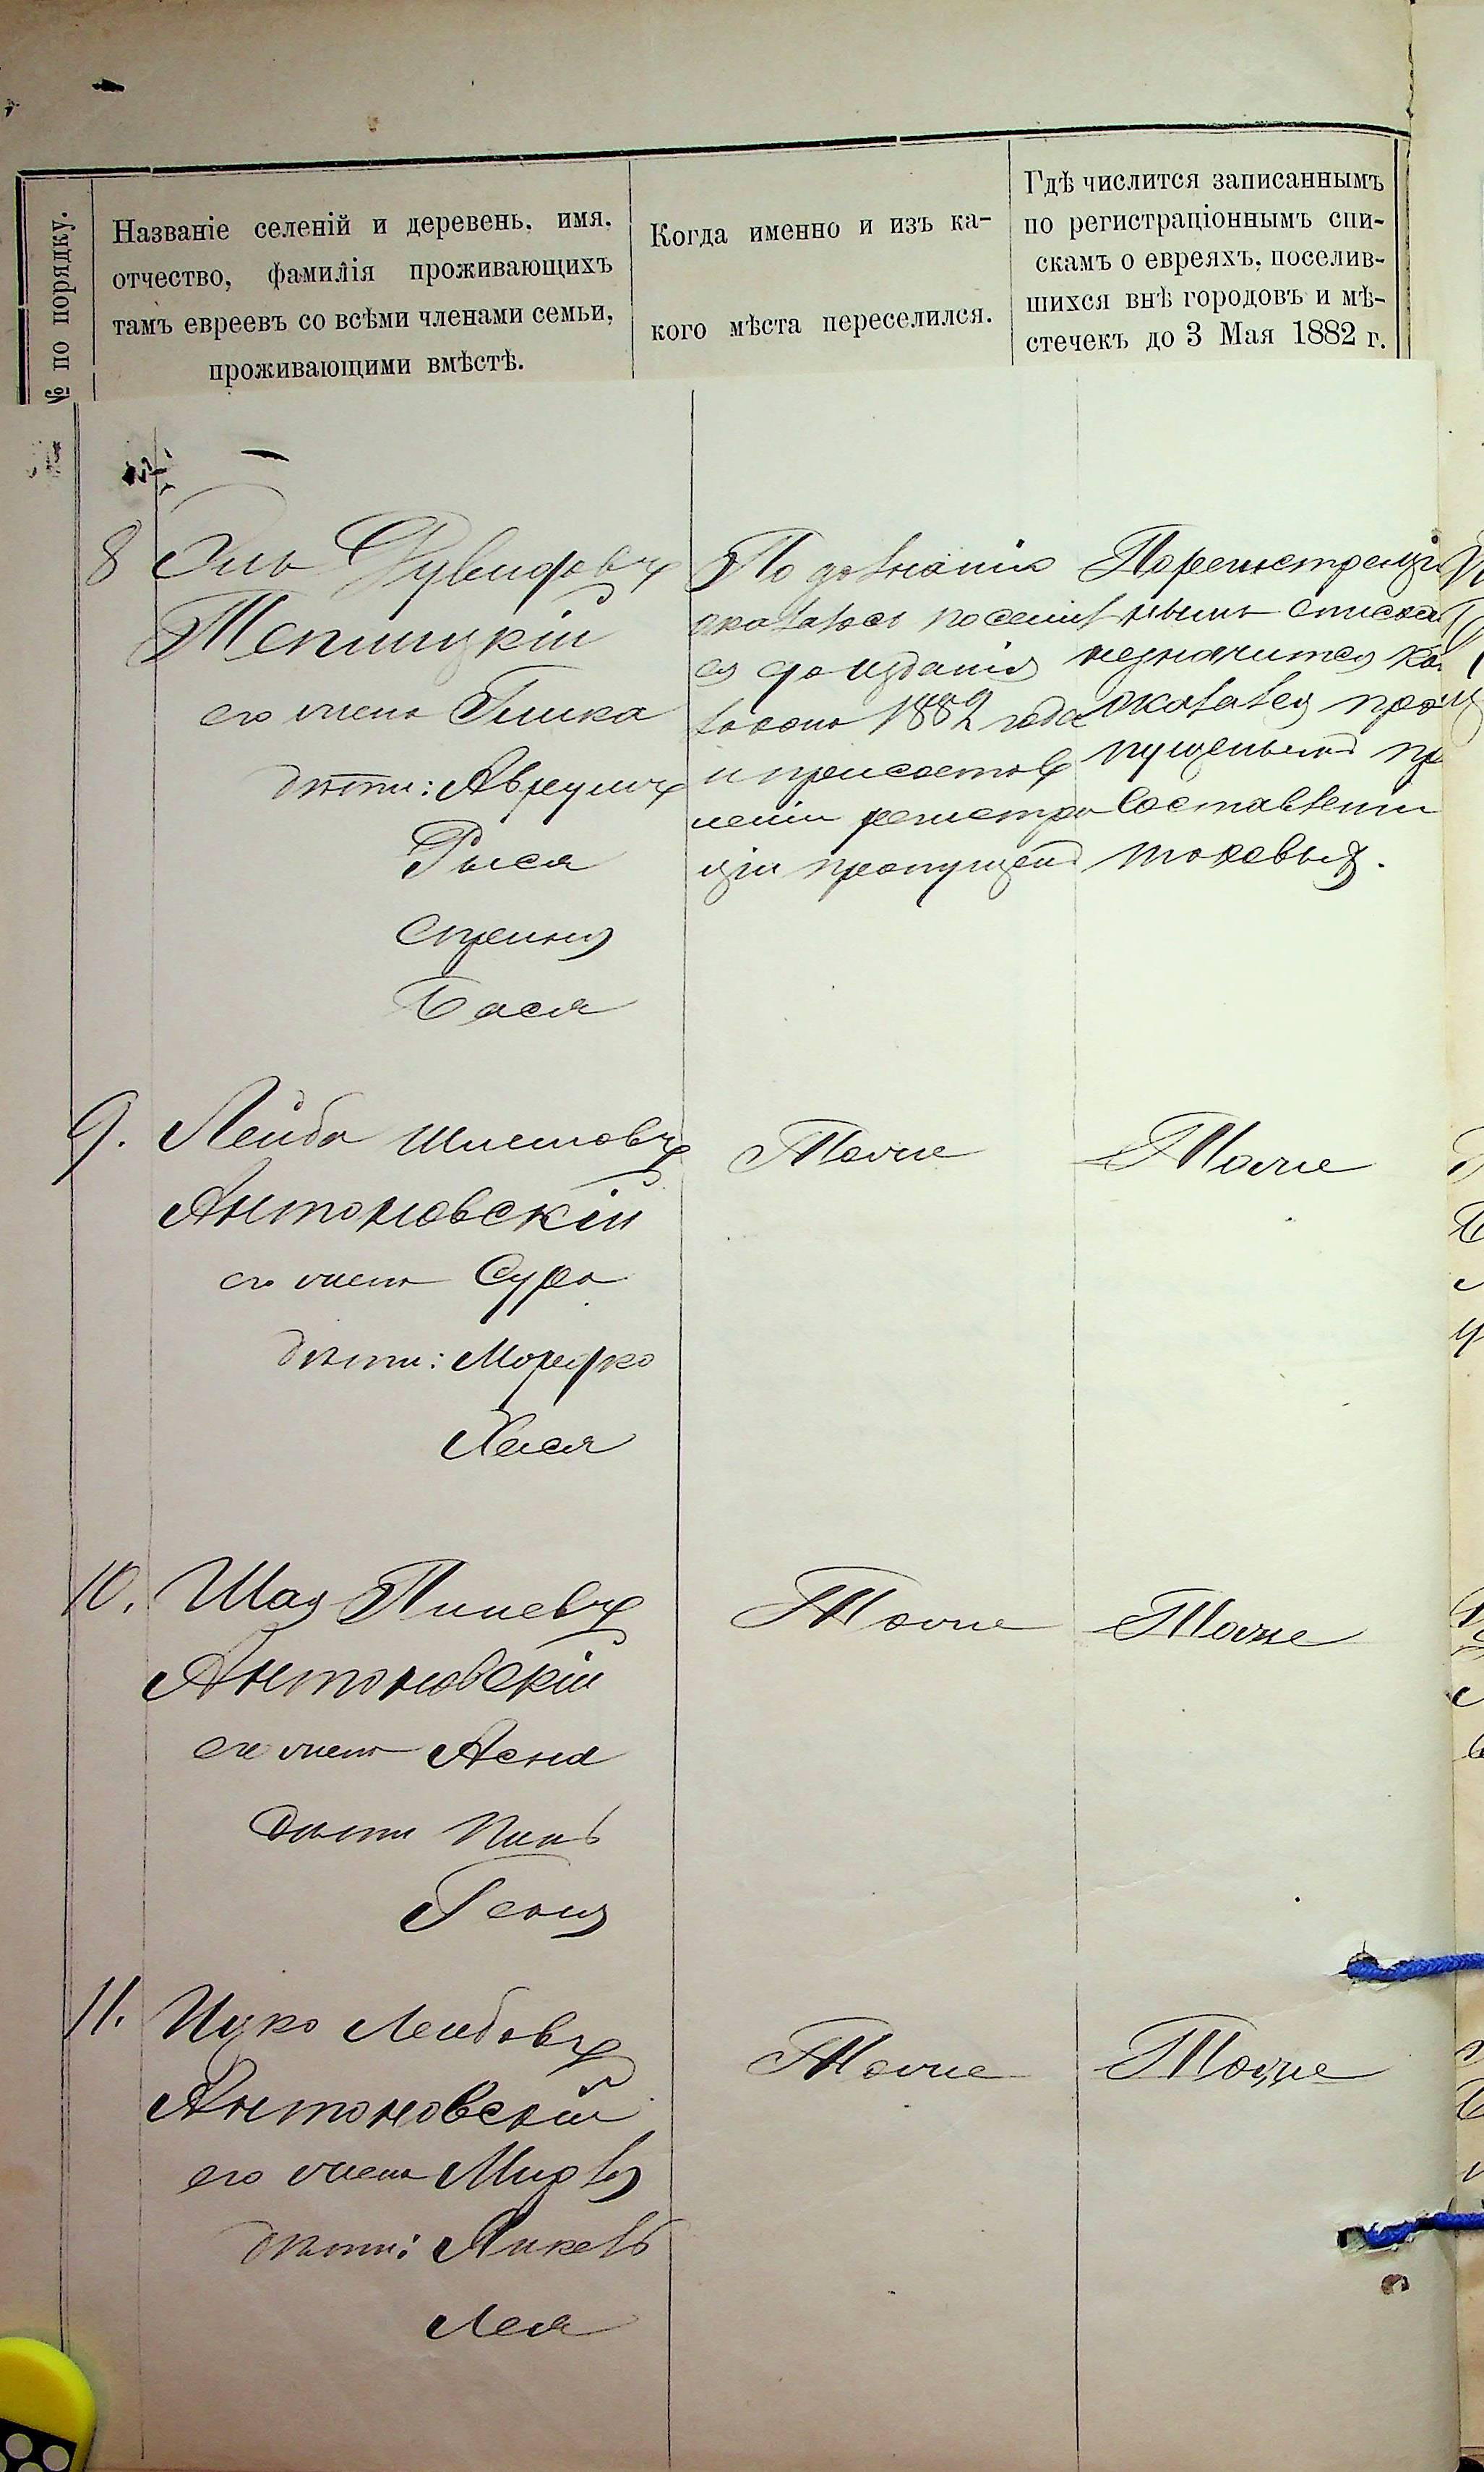 № по порядку.
Названіе селеній и деревень, имя,
отчество, фамилія проживающихъ
тамъ евреевъ со всѣми членами семьи,
проживающими вмѣстѣ.
Когда именно и изъ ка-
кого мѣста переселился.
Гдѣ числится записаннымъ
по регистраціоннымъ спи-
скамъ о евреяхъ, поселив-
шихся внѣ городовъ и мѣ-
стечекъ до 3 Мая 1882 г.
8 Эль
его жена
дѣти:
Рыся
Сприня
Бася
По дознанію
оказалось поселил
ся до изданія
закона 1882 года
и при состав
леніи регистра
ціи пропущенъ
По регистраці
нымъ списка
незначится
оказался про
пущеннымъ пр
составленіи
таковыхъ.
9. Лейба Шлемовъ
Антоновскій
его жена Сура
дѣти: Мордко
Хася
Тоже
Тоже
10. Шая Пиневъ
Антоновскій
его жена Асна
дѣти
Геня
Тоже
Тоже
11. Ицко Лейбовъ
Антоновскій
его жена
дѣти:
Лея
Тоже
Тоже